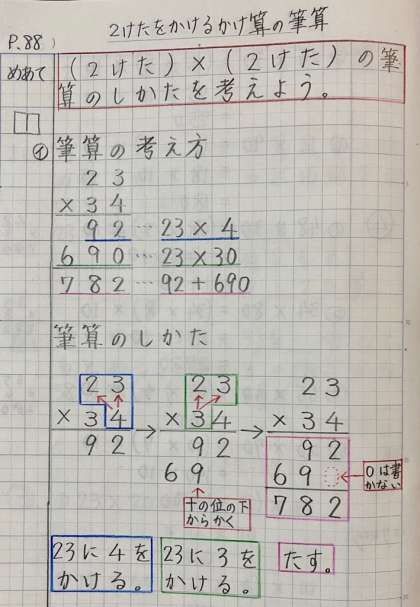 2けたをかけるかけ算の筆算
P.88
めあて
(2けた)×(2けた)の筆
算のしかたを考えよう。
1
イ 筆算の考え方
23
×34
92…23×4
690…23×30
782…92+690
筆算のしかた
23 → 23 → 23
×34 ×34 ×34
92 92 92
69 69
0は書
かない
782
十の位の下
からかく
23に4を
かける。
23に3を
かける。
たす。